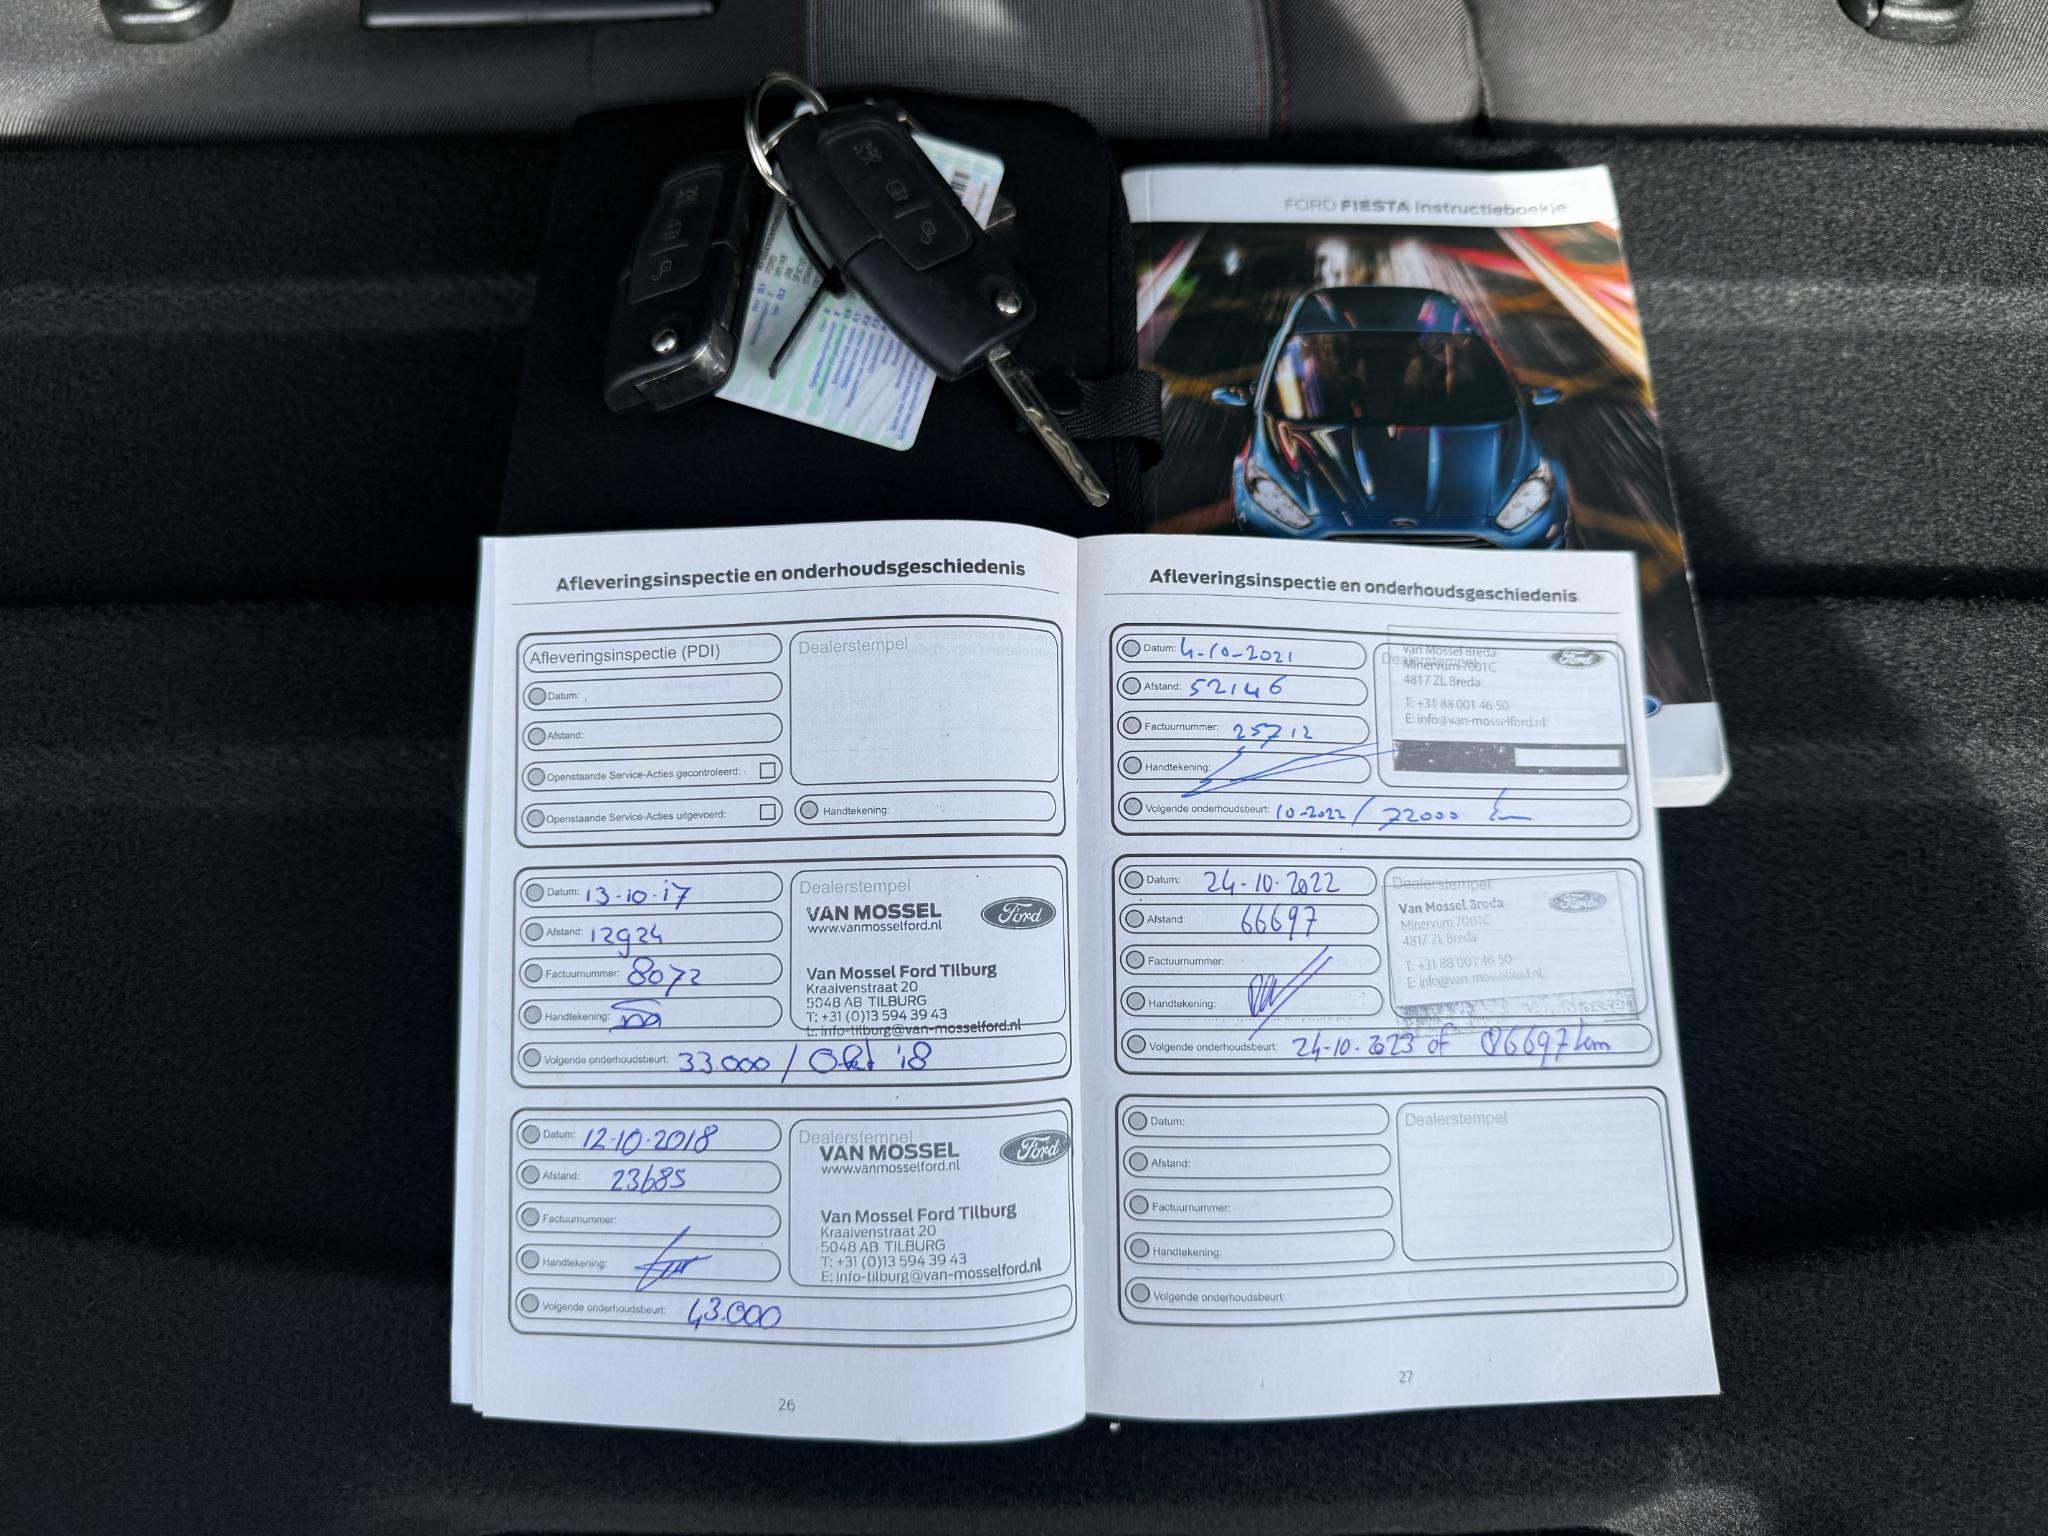 FORD FIESTA Instructieboekje
Afleveringsinspectie en onderhoudsgeschiedenis
Afleveringsinspectie (PDI)
Datum:
Afstand:
Openstaande Service-Acties gecontroleerd:
Openstaande Service-Acties uitgevoerd:
Dealerstempel
Handtekening:
Datum: 13-10-17
Afstand: 12924
Factuurnummer: 8072
Handtekening:
Volgende onderhoudsbeurt: 33.000 / Okt '18
Dealerstempel
VAN MOSSEL
www.vanmosselford.nl
Ford
Van Mossel Ford Tilburg
Kraaivenstraat 20
5048 AB TILBURG
T: +31 (0)13 594 39 43
E: info-tilburg@van-mosselford.nl
Datum: 12-10-2018
Afstand: 23685
Factuurnummer:
Handtekening:
Volgende onderhoudsbeurt: 43.000
Dealerstempel
VAN MOSSEL
www.vanmosselford.nl
Ford
Van Mossel Ford Tilburg
Kraaivenstraat 20
5048 AB TILBURG
T: +31 (0)13 594 39 43
E: info-tilburg@van-mosselford.nl
26
Afleveringsinspectie en onderhoudsgeschiedenis
Datum: 4-10-2021
Afstand: 52146
Factuurnummer: 25712
Handtekening:
Volgende onderhoudsbeurt: 10-2022 / 72000 km
Dealerstempel
Van Mossel Breda
Minervum 7001C
4817 ZL Breda
T: +31 88 001 46 50
E: info@van-mosselford.nl
Ford
Datum: 24-10-2022
Afstand: 66697
Factuurnummer:
Handtekening:
Volgende onderhoudsbeurt: 24-10-2023 of 86697 km
Dealerstempel
Van Mossel Breda
Minervum 7001C
4817 ZL Breda
T: +31 88 001 46 50
E: info@van-mosselford.nl
Ford
Van Mossel
Datum:
Afstand:
Factuurnummer:
Handtekening:
Volgende onderhoudsbeurt:
Dealerstempel
27